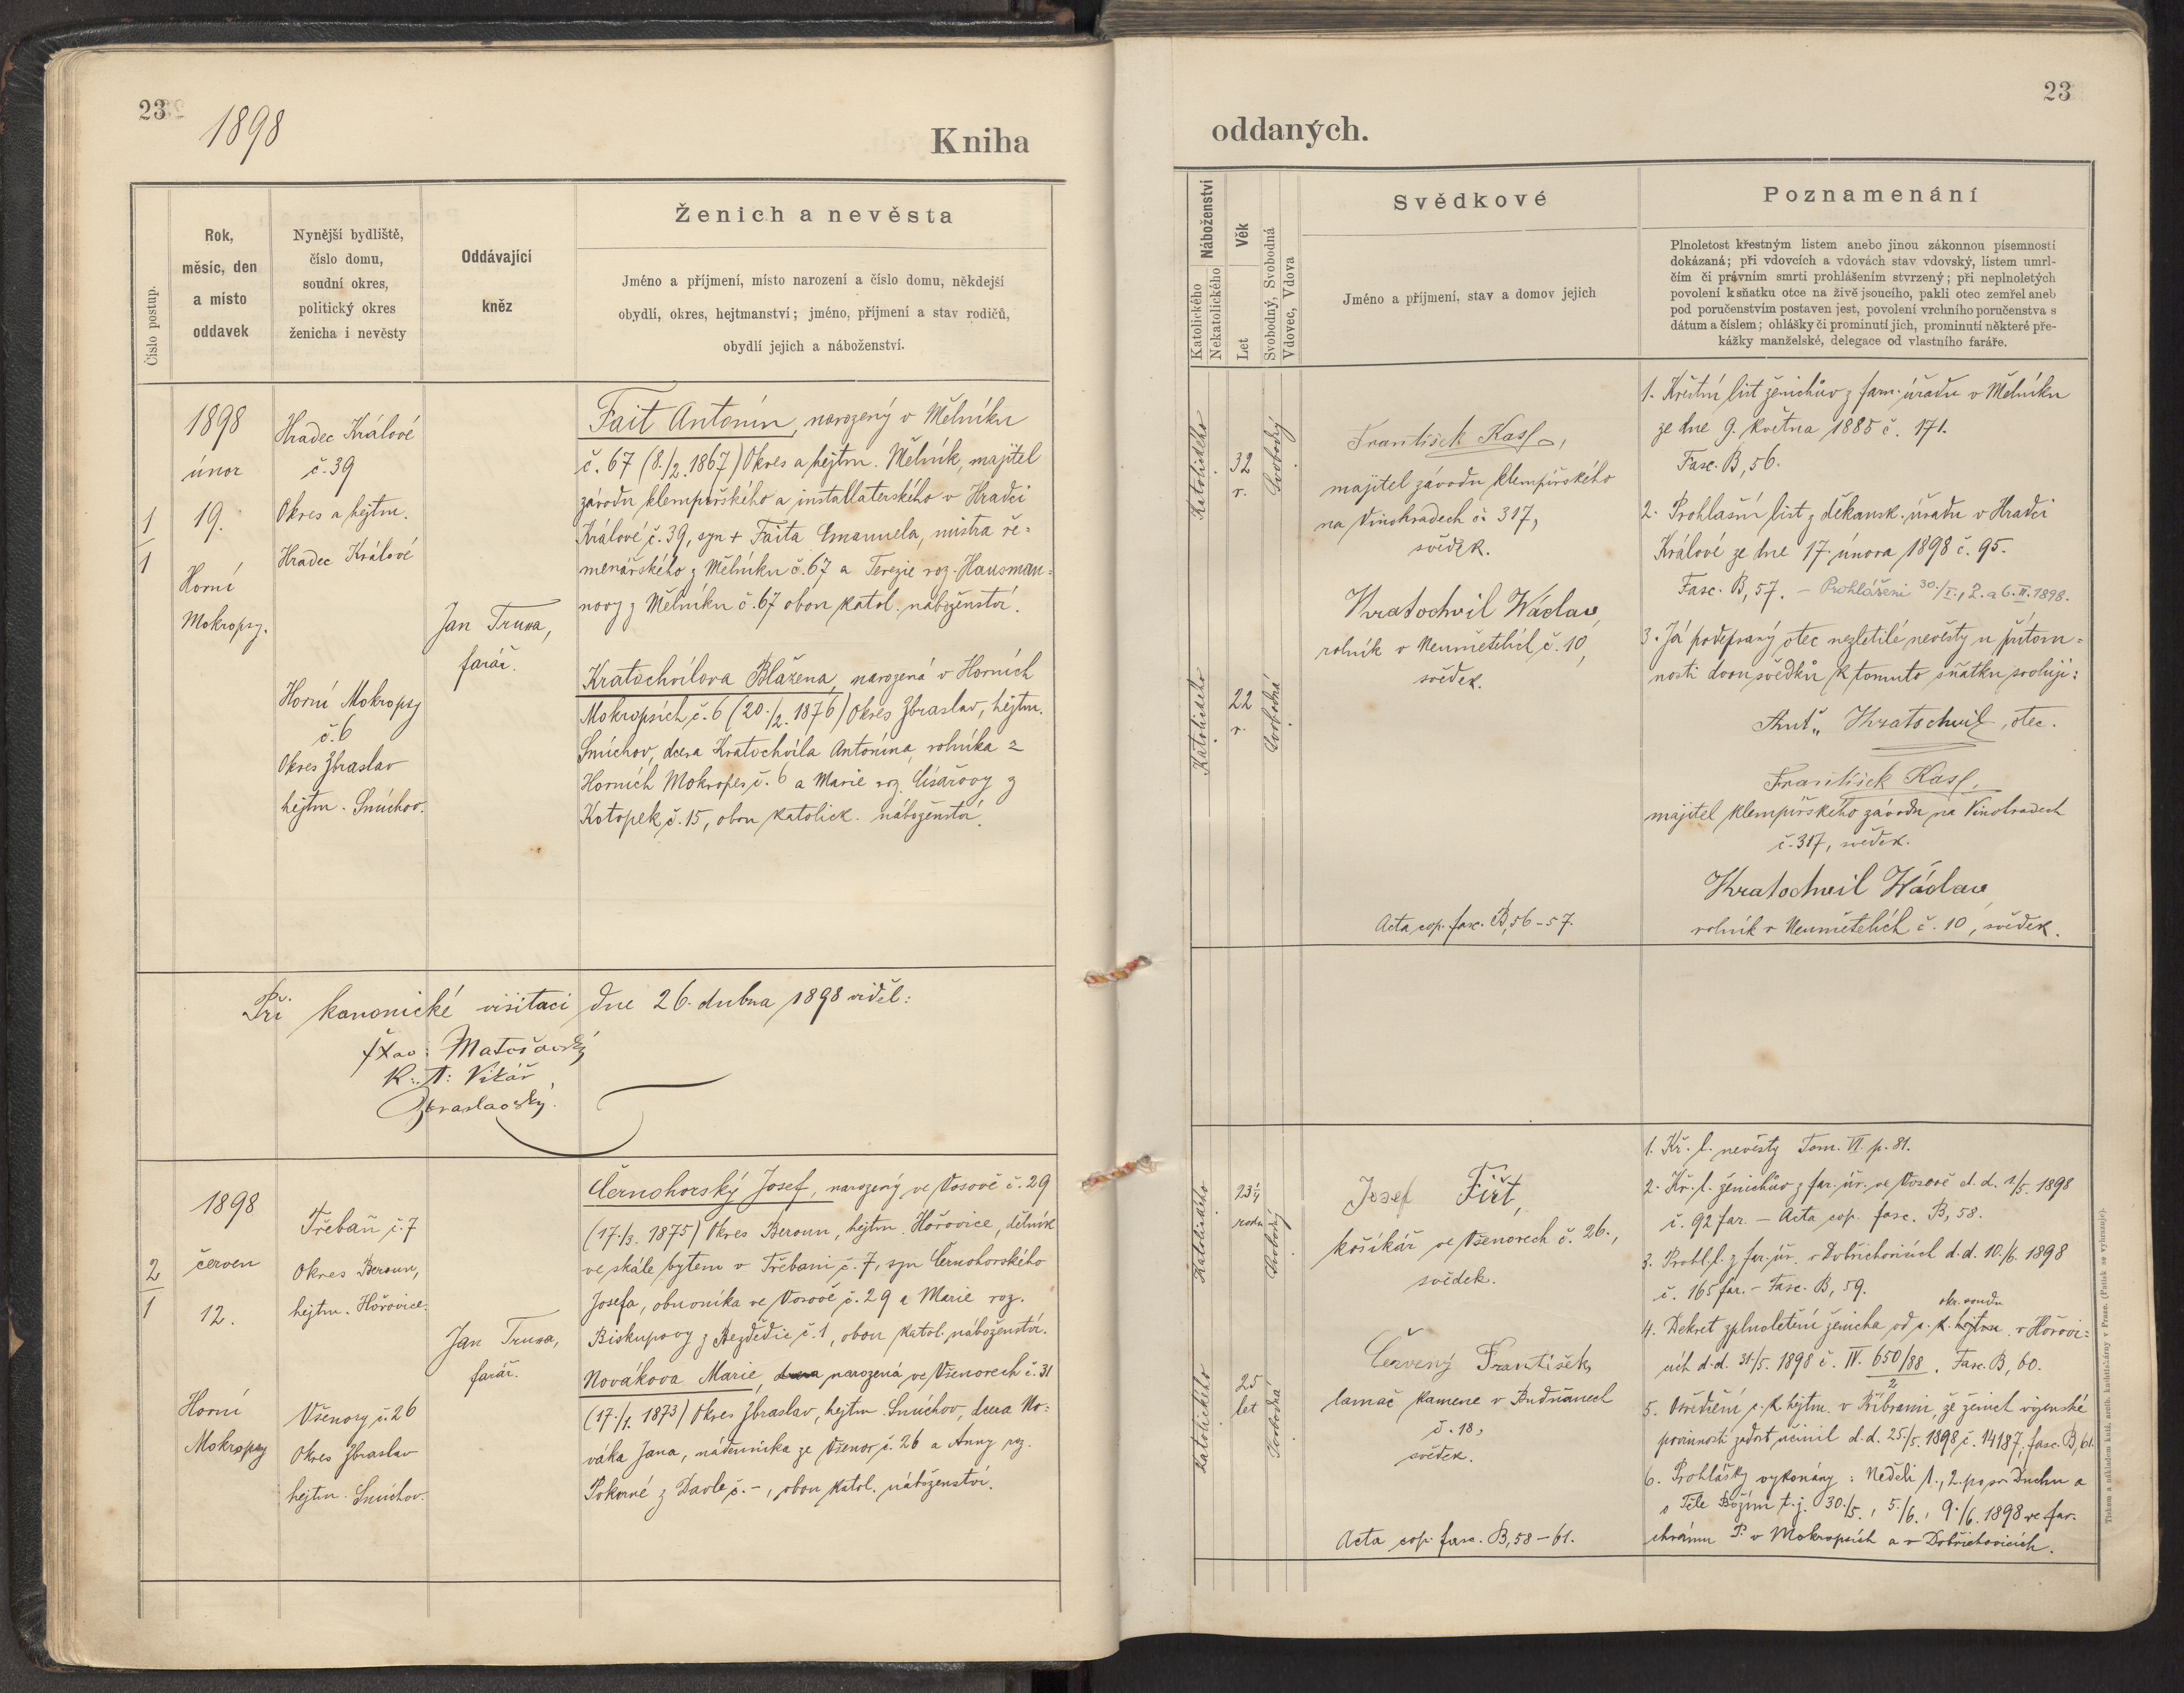 23
1898
Kniha
Číslo postup.
Rok,
měsíc, den
a místo
oddavek
Nynější bydliště,
číslo domu,
soudní okres,
politický okres
ženicha i nevěsty
Oddávající
kněz
Ženich a nevěsta
Jméno a příjmení, místo narození a číslo domu, někdejší
obydlí, okres, hejtmanství; jméno, příjmení a stav rodičů,
obydlí jejich a náboženství.
1
1
1898
únor
19.
Horní
Mokropsy.
Hradec Králové
č. 39
Okres a hejtm.
Hradec Králové
Horní Mokropsy
č. 6
Okres Zbraslav
hejtm. Smíchov.
Jan Truxa,
farář.
Fait Antonín, narozený v Mělníku
č. 67 (8./2. 1867) Okres a hejtm. Mělník, majitel
závodu klempířského a installaterského v Hradci
Králové č. 39, syn + Faita Emanuela, mistra ře=
menářského z Mělníku č. 67 a Terezie roz. Hausman=
novy z Mělníku č. 67 obou katol. náboženství.
Kratochvílova Blažena, narozená v Horních
Mokropsích č. 6 (20./2. 1876) Okres Zbraslav, hejtm.
Smíchov, dcera Kratochvíla Antonína, rolníka z
Horních Mokropes č. 6 a Marie roz. Císařovy z
Kotopek č. 15, obou katolick. náboženství.
Při kanonické visitaci dne 26. dubna 1898 viděl:
K. A. Vikář
Zbraslavský.
2
1
1898
červen
12.
Horní
Mokropsy
Třebaň č. 7
Okres Beroun,
hejtm. Hořovice.
Všenory č. 26
Okres Zbraslav
hejtm. Smíchov.
Jan Truxa,
farář.
Černohorský Josef, narozený ve Vosově č. 29
(17./3. 1875) Okres Beroun, hejtm. Hořovice, dělník
ve skále bytem v Třebani č. 7, syn Černohorského
Josefa, obuvníka ve Vosově č. 29 a Marie roz.
Biskupovy z Bezdědic č. 1, obou katol. náboženství.
Novákova Marie, dcera narozená ve Všenorech č. 31
(17./1. 1873) Okres Zbraslav, hejtm. Smíchov, dcera No=
váka Jana, nádenníka ze Všenor č. 26 a Anny roz.
Pokorné z Davle č. -, obou katol. náboženství.
23
oddaných.
Náboženství
Katolického
Nekatolického
Věk
Let
Svobodný, Svobodná
Vdovec, Vdova
Svědkové
Jméno a příjmení, stav a domov jejich
Poznamenání
Plnoletost křestným listem anebo jinou zákonnou písemností
dokázaná; při vdovcích a vdovách stav vdovský, listem umrl-
čím či právním smrti prohlášením stvrzený; při neplnoletých
povolení k sňatku otce na živě jsoucího, pakli otec zemřel aneb
pod poručenstvím postaven jest, povolení vrchního poručenstva s
dátum a číslem; ohlášky či prominutí jich, prominutí některé pře-
kážky manželské, delegace od vlastního faráře.
Katolického
32
r.
Svobodný
Katolického
22
r.
Svobodná
František Kasl,
majitel závodu klempířského
na Vinohradech č. 317,
svědek.
Kratochvil Wáclav,
rolník v Neumětelích č. 10,
svědek.
Acta cop. fasc. B, 56-57.
1. Křestní list ženichův z farn. úřadu v Mělníku
ze dne 9. května 1885 č. 171.
Fasc. B, 56.
2. Prohlašní list z děkansk. úřadu v Hradci
Králové ze dne 17. února 1898 č. 95.
Fasc. B, 57. - Prohlášeni 30./I., 2. a 6. II. 1898.
3. Já podepsaný otec nezletilé nevěsty u přítom=
nosti dvou svědků k tomuto sňatku svoluji:
Ant. Kratochvil, otec.
František Kasl,
majitel klempířského závodu na Vinohradech
č. 317, svědek.
Kratochvil Wáclav
rolník v Neumětelích č. 10, svědek.
Katolického
23¼
roku
Svobodný
Katolického
25
let
Svobodná
Josef Fišt,
košíkář ve Všenorech č. 26.,
svědek.
Červený František,
lamač kamene v Budňanech
č. 18,
svědek.
Acta cop. fasc. B, 58-61.
1. Kř. l. nevěsty Tom. VI. p. 81.
2. Kř. l. ženichův z far. úř. ve Vosově d. d. 1/5. 1898
č. 92 far. - Acta cop. fasc. B, 58.
3. Prohl. l. z far. úř. v Dobřichovicích d. d. 10./6. 1898
č. 165 far. - Fasc. B, 59.
okr. soudu
4. Dekret zplnoletění ženicha od c. k. hejtm. v Hořovi=
cích d. d. 31/5. 1898 č. IV. 650/88. Fasc. B, 60.
2
5. Osvědčení c. k. hejtm. v Příbrami že ženich vojenské
povinnosti zadost učinil d. d. 25/5. 1898 č. 14187, fasc. B, 61.
6. Prohlášky vykonány: Neděli 1., 2. po sv. Duchu a
o Těle Božím t. j. 30./5., 5./6., 9./6. 1898 ve far.
chrámu P. v Mokropsích a v Dobřichovicích.
Tiskem a nákladem kníž. arcib. knihtiskárny v Praze. (Patisk se vyhrazuje).